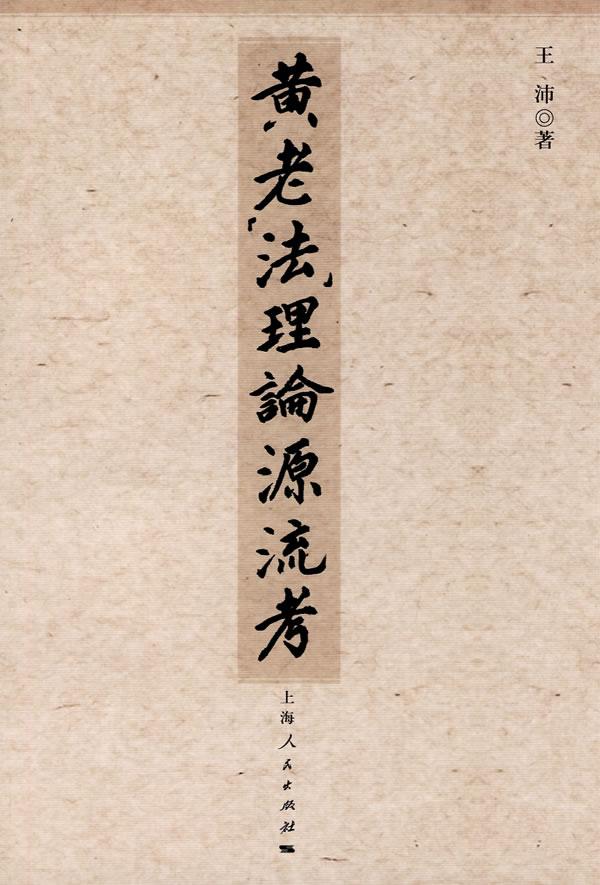 王沛◎著
黄老「法」理論源流考
上海人民出版社